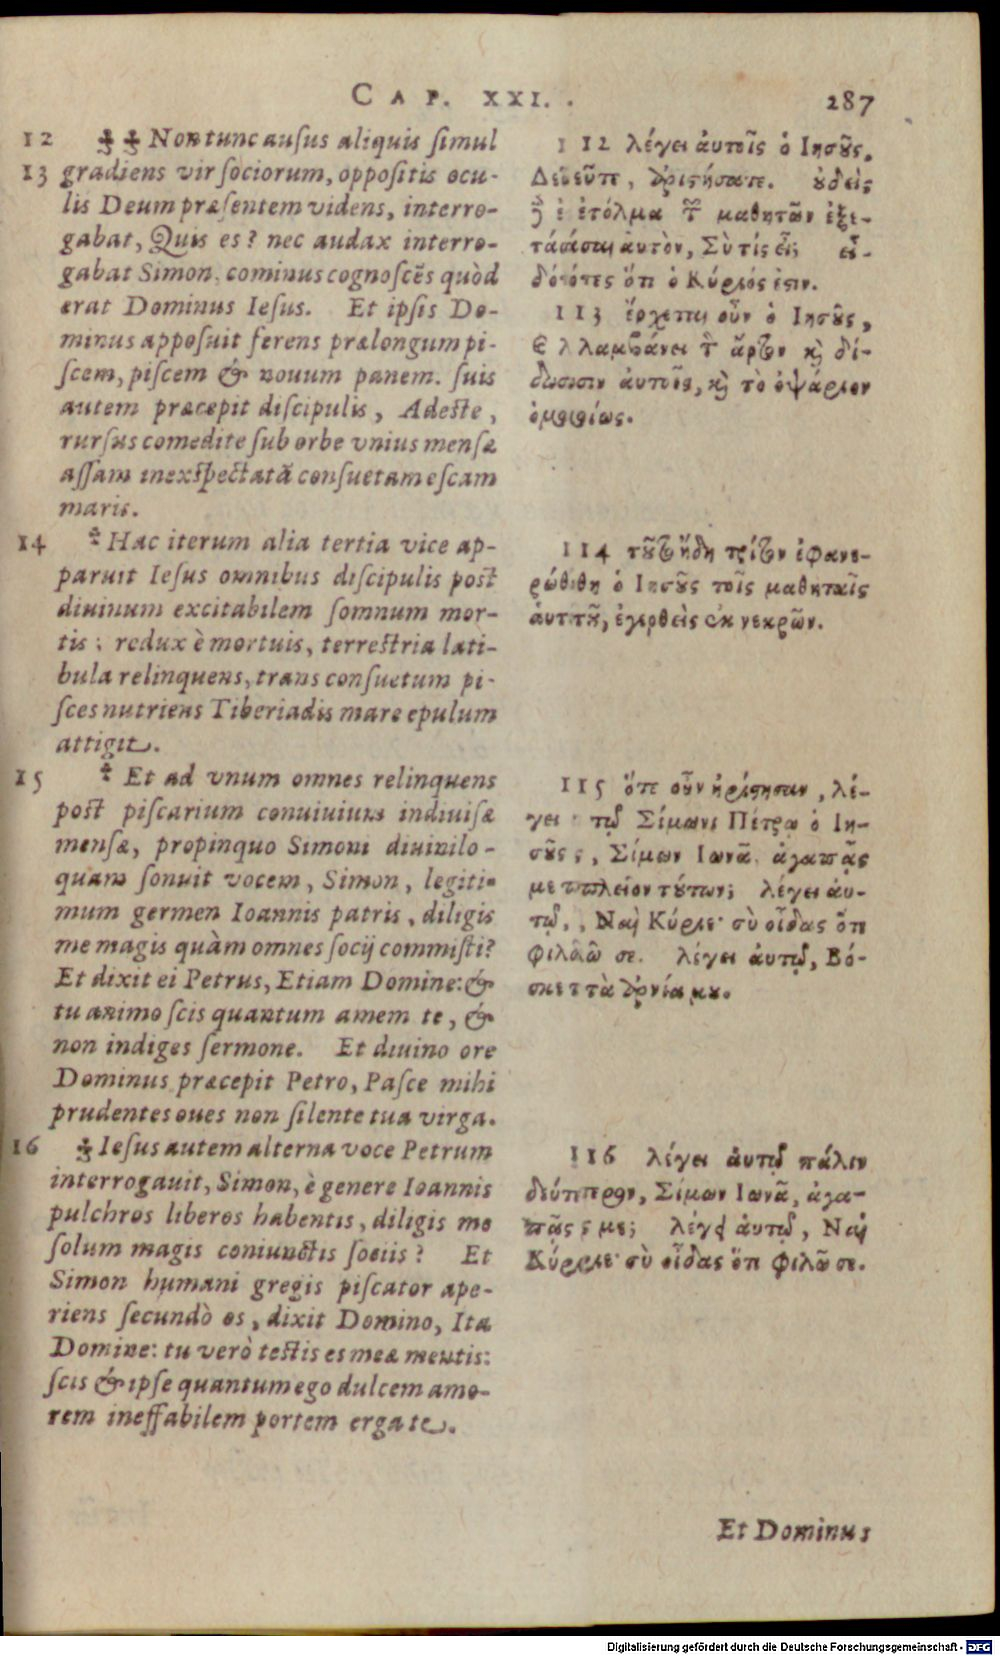 CAP. XXI.
287
12 Non tunc ausus aliquis simul
13 gradiens vir sociorum, oppositis ocu-
lis Deum præsentem videns, interro-
gabat, Quis es? nec audax interro-
gabat Simon, cominus cognoscẽs quòd
erat Dominus Iesus. Et ipsis Do-
minus apposuit ferens prælongum pi-
scem, piscem & nouum panem. suis
autem præcepit discipulis, Adeste,
rursus comedite sub orbe vnius mensæ
assam inexspectatã consuetam escam
maris.
14 Hac iterum alia tertia vice ap-
paruit Iesus omnibus discipulis post
diuinum excitabilem somnum mor-
tis: redux è mortuis, terrestria lati-
bula relinquens, trans consuetum pi-
sces nutriens Tiberiadis mare epulum
attigit.
15 Et ad vnum omnes relinquens
post piscarium conuiuium indiuisæ
mensæ, propinquo Simoni diuinilo-
quam sonuit vocem, Simon, legiti-
mum germen Ioannis patris, diligis
me magis quàm omnes socij commisti?
Et dixit ei Petrus, Etiam Domine: &
tu animo scis quantum amem te, &
non indiges sermone. Et diuino ore
Dominus præcepit Petro, Pasce mihi
prudentes oues non silente tua virga.
16 Iesus autem alterna voce Petrum
interrogauit, Simon, è genere Ioannis
pulchros liberos habentis, diligis me
solum magis coniunctis sociis? Et
Simon humani gregis piscator ape-
riens secundò os, dixit Domino, Ita
Domine: tu verò testis es meæ mentis:
scis & ipse quantum ego dulcem amo-
rem ineffabilem portem erga te.
112 λέγει ἀυτοῖς ὁ Ιησοῦς,
Δεῦτε, ἀριστήσατε. οὐδεὶς
δὲ ἐτόλμα τῶν μαθητῶν ἐξε-
τάσαι ἀυτὸν, Σὺ τίς εἶ; εἰ-
δότες ὅτι ὁ Κύριός ἐστιν.
113 ἔρχεται οὖν ὁ Ιησοῦς,
λαμβάνει τὸν ἄρτον καὶ δί-
δωσιν ἀυτοῖς, καὶ τὸ ὀψάριον
ὁμοίως.
114 τοῦτο ἤδη τρίτον ἐφανε-
ρώθη ὁ Ιησοῦς τοῖς μαθηταῖς
ἁυτοῦ, ἐγερθεὶς ἐκ νεκρῶν.
115 ὅτε οὖν ἠρίστησαν, λέ-
γει τῷ Σίμωνι Πέτρῳ ὁ Ιη-
σοῦς, Σίμων Ιωνᾶ, ἀγαπᾷς
με πλεῖον τούτων; λέγει ἀυ-
τῷ, Ναὶ Κύριε· σὺ οἶδας ὅτι
φιλῶ σε. λέγει ἀυτῷ, Βό-
σκε τὰ ἀρνία μου.
116 λέγει ἀυτῷ πάλιν
δεύτερον, Σίμων Ιωνᾶ, ἀγα-
πᾷς με; λέγει ἀυτῷ, Ναὶ
Κύριε· σὺ οἶδας ὅτι φιλῶ σε.
Et Dominus
Digitalisierung gefördert durch die Deutsche Forschungsgemeinschaft - DFG